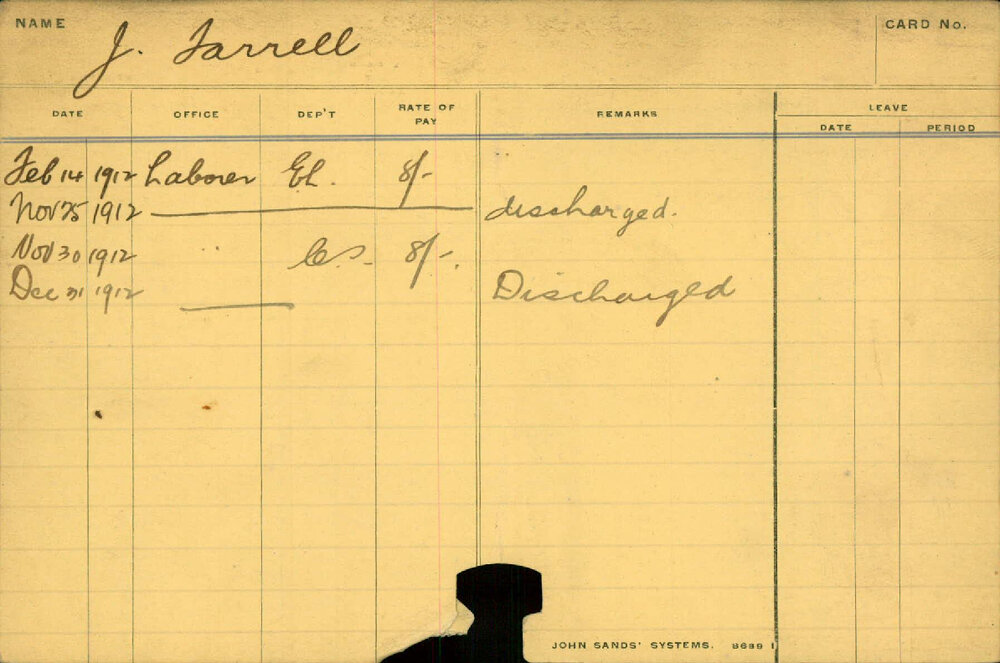 NAME J. Farrell CARD No.
DATE OFFICE DEP'T RATE OF PAY REMARKS LEAVE
DATE PERIOD
Feb 14 1912 Laborer EL. 8/-
Nov 25 1912 discharged.
Nov 30 1912 " 8/-.
Dec 21 1912 Discharged
JOHN SANDS' SYSTEMS.